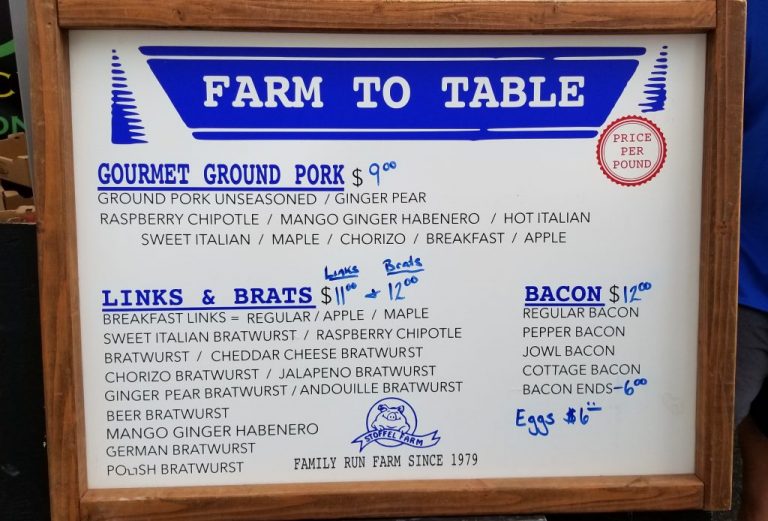 FARM TO TABLE
PRICE
PER
POUND
GOURMET GROUND PORK $ 9.00
GROUND PORK UNSEASONED / GINGER PEAR
RASPBERRY CHIPOTLE / MANGO GINGER HABENERO / HOT ITALIAN
SWEET ITALIAN / MAPLE / CHORIZO / BREAKFAST / APPLE
Links Brats
LINKS & BRATS $11.00 & 12.00
BREAKFAST LINKS = REGULAR / APPLE / MAPLE
SWEET ITALIAN BRATWURST / RASPBERRY CHIPOTLE
BRATWURST / CHEDDAR CHEESE BRATWURST
CHORIZO BRATWURST / JALAPENO BRATWURST
GINGER PEAR BRATWURST / ANDOUILLE BRATWURST
BEER BRATWURST
MANGO GINGER HABENERO
GERMAN BRATWURST
POLISH BRATWURST
STOFFEL FARM
FAMILY RUN FARM SINCE 1979
BACON $12.00
REGULAR BACON
PEPPER BACON
JOWL BACON
COTTAGE BACON
BACON ENDS - 6.00
Eggs $6